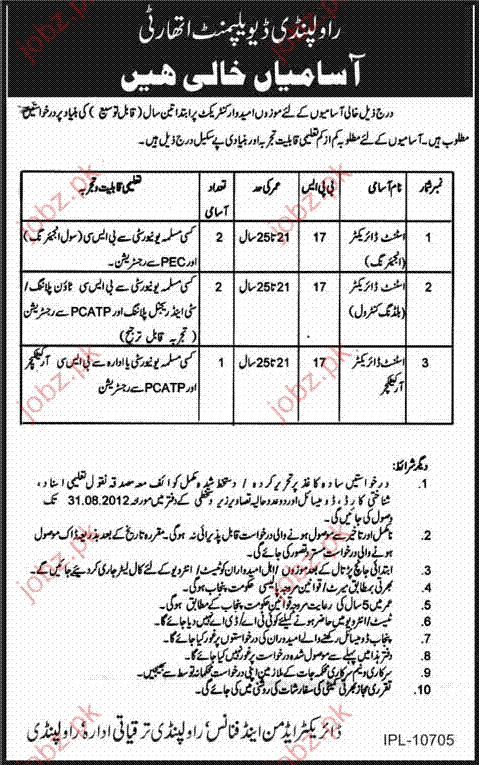 راولپنڈی ڈیویلپمنٹ اتھارٹی
آسامیاں خالی ہیں
درج ذیل خالی آسامیوں کے لئے موزوں امیدوار کنٹریکٹ پر ابتدا تین سال (قابل توسیع) کی بنیاد پر درخواستیں
مطلوب ہیں۔ آسامیوں کے لئے مطلوبہ کم از کم تعلیمی قابلیت تجربہ اور بنیادی پے سکیل درج ذیل ہیں۔
نمبر شمار نام آسامی بی پی ایس عمر کی حد تعداد آسامی تعلیمی قابلیت و تجربہ
1 اسسٹنٹ ڈائریکٹر (انجینئرنگ) 17 21 تا 25 سال 2 کسی مسلمہ یونیورسٹی سے بی ایس سی (سول انجینئرنگ) اور PEC سے رجسٹریشن۔
2 اسسٹنٹ ڈائریکٹر (بلڈنگ کنٹرول) 17 21 تا 25 سال 2 کسی مسلمہ یونیورسٹی سے بی ایس سی ٹاؤن پلاننگ/ سٹی اینڈ ریجنل پلاننگ اور PCATP سے رجسٹریشن (تجربہ قابل ترجیح)
3 اسسٹنٹ ڈائریکٹر آرکیٹکچر 17 21 تا 25 سال 1 کسی مسلمہ یونیورسٹی یا ادارہ سے بی ایس سی آرکیٹکچر اور PCATP سے رجسٹریشن
دیگر شرائط:
1. درخواستیں سادہ کاغذ پر تحریر کردہ / دستخط شدہ مکمل کوائف معہ مصدقہ نقول تعلیمی اسناد،
شناختی کارڈ، ڈومیسائل اور دو عدد حالیہ تصاویر زیر دستخطی کے دفتر میں مورخہ 31.08.2012 تک
وصول کی جائیں گی۔
2. نامکمل اور تاخیر سے موصول ہونے والی درخواست قابل پذیرائی نہ ہوگی۔ مقررہ تاریخ کے بعد بذریعہ ڈاک موصول
ہونے والی درخواست مسترد تصور کی جائے گی۔
3. ابتدائی جانچ پڑتال کے بعد موزوں / اہل امیدواران کو ٹیسٹ / انٹرویو کے لئے کال لیٹر جاری کر دیئے جائیں گے۔
4. بھرتی بمطابق میرٹ / قوانین مروجہ پالیسی حکومت پنجاب ہوگی۔
5. عمر میں 5 سال کی رعایت مروجہ قوانین حکومت پنجاب کے مطابق ہوگی۔
6. ٹیسٹ / انٹرویو میں حاضر ہونے کیلئے کوئی ٹی اے / ڈی اے نہیں دیا جائے گا۔
7. پنجاب ڈومیسائل رکھنے والے امیدوران کی درخواستوں پر غور کیا جائے گا۔
8. دفتر ہذا میں پہلے سے موصول شدہ درخواست پر غور نہیں کیا جائے گا۔
9. سرکاری و نیم سرکاری محکمہ جات کے ملازمین اپنی درخواست محکمانہ توسط سے بھیجیں۔
10. تقرری مجاز بھرتی کمیٹی کی سفارشات کی روشنی میں کی جائے گی۔
ڈائریکٹر ایڈمن اینڈ فنانس، راولپنڈی ترقیاتی ادارہ، راولپنڈی
IPL-10705
jobz.pk